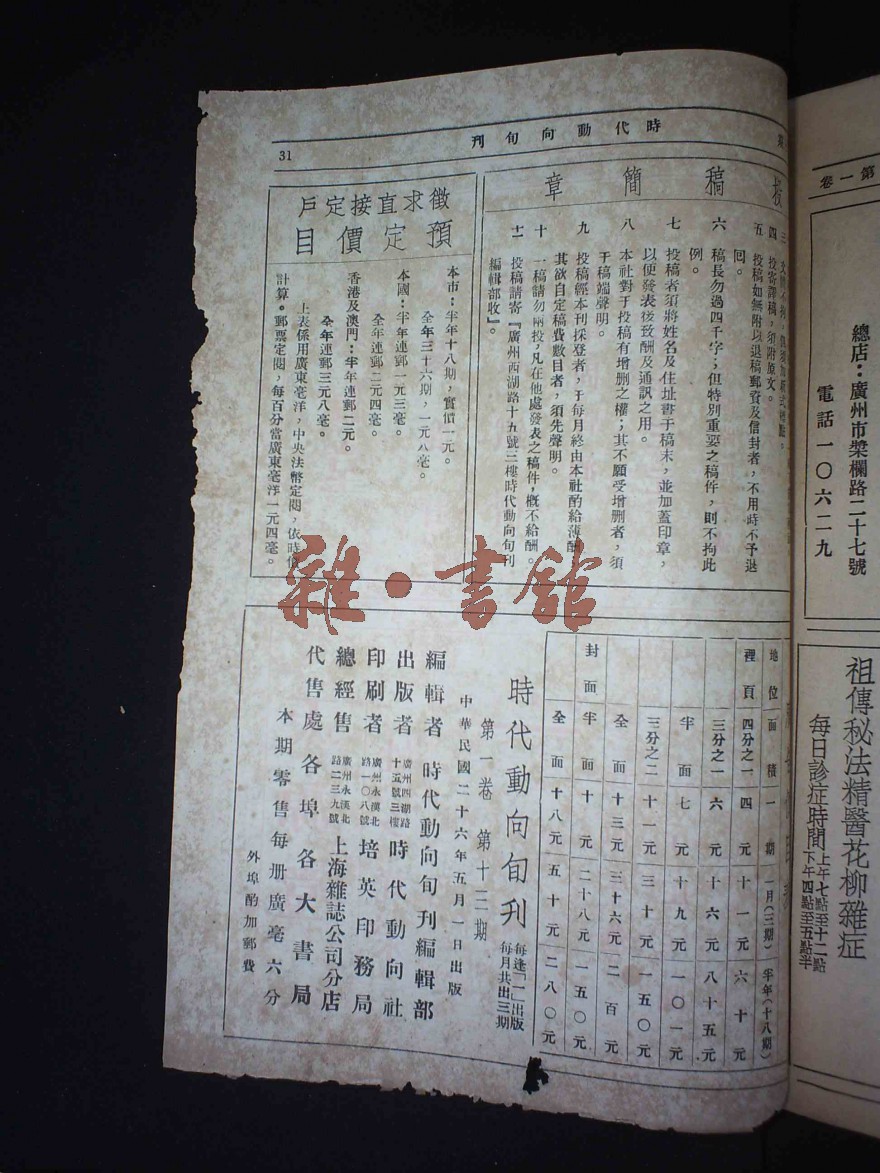 時代動向旬刊
31
稿簡章
四　投寄譯稿，須附原文。
五　投稿如無附以退稿郵費及信封者，不用時不予退
回。
六　稿長勿過四千字；但特別重要之稿件，則不拘此
例。
七　投稿者須將姓名及住址書于稿末，並加蓋印章，
以便發表後致酬及通訊之用。
八　本社對于投稿有增删之權；其不願受增删者，須
于稿端聲明。
九　投稿經本刊採登者，于每月終由本社酌給薄酬
其欲自定稿費數目者，須先聲明。
十　一稿請勿兩投，凡在他處發表之稿件，概不給酬。
十一　投稿請寄『廣州西湖路十五號三樓時代動向旬刊
編輯部收』。
徵求直接定戶
預定價目
本市：半年十八期，實價一元。
全年三十六期，一元八毫。
本國：半年連郵一元三毫。
全年連郵二元四毫。
香港及澳門：半年連郵二元。
全年連郵三元八毫。
上表係用廣東毫洋，中央法幣定閱，依時價
計算。郵票定閱，每百分當廣東毫洋一元四毫。
地位　面積　一期　一月（三期）　半年（十八期）
裡頁　四分之一　四元　十一元　六十元
三分之一　六元　十六元　八十五元
半面　七元　十九元　一〇一元
三分之二　十一元　三十元　一五〇元
全面　十三元　三十六元　二百元
封面　半面　十元　二十八元　一五〇元
全面　十八元　五十元　二八〇元
時代動向旬刊　每逢「一」出版　每月共出三期
第一卷　第十二期
中華民國二十六年五月一日出版
編輯者　時代動向旬刊編輯部
出版者　廣州西湖路十五號三樓　時代動向社
印刷者　廣州永漢北路一〇八號　培英印務局
總經售　廣州永漢北路二三九號　上海雜誌公司分店
代售處　各埠各大書局
本期零售每册廣毫六分
外埠酌加郵費
雜·書館
第一卷
總店：廣州市槳欄路二十七號
電話一〇六二九
祖傳秘法精醫花柳雜症
每日診症時間　上午七點至十二點　下午四點至五點半